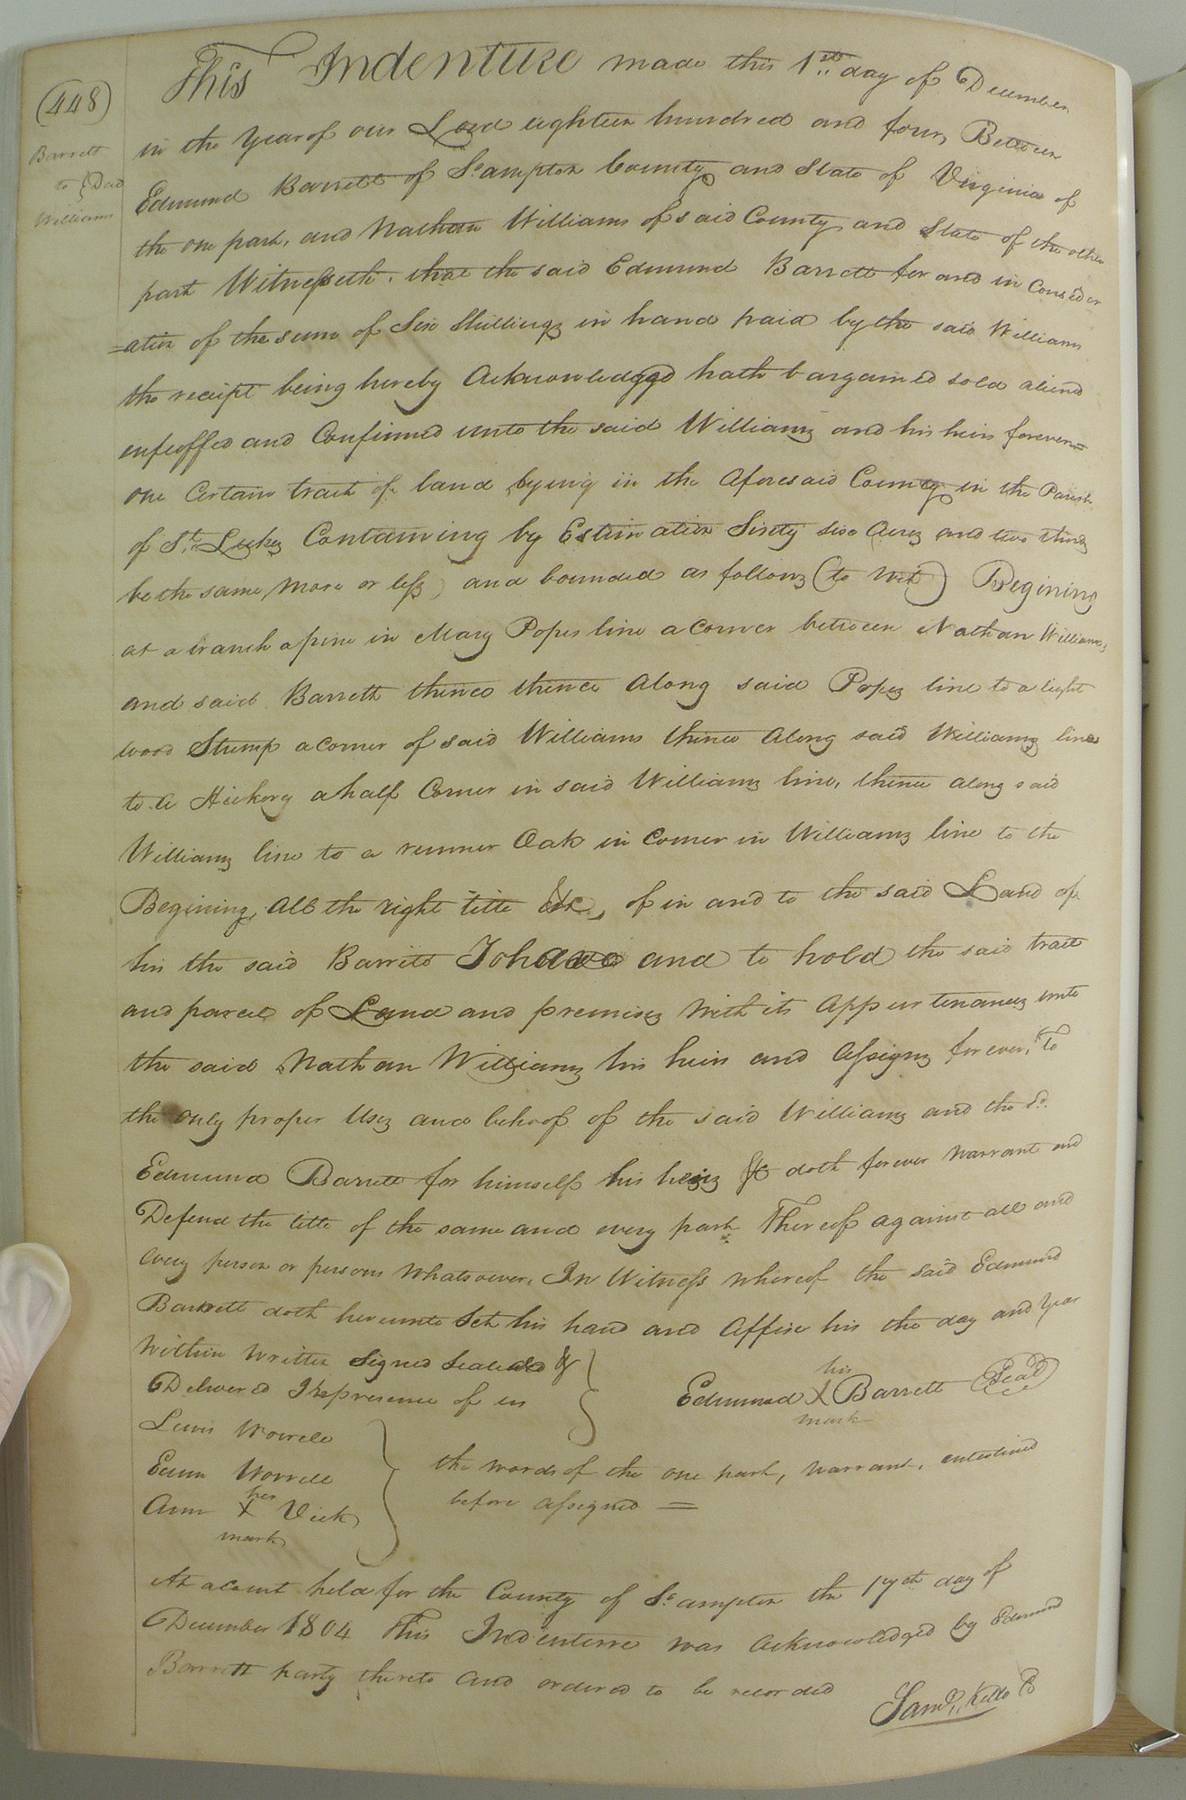 (448)
Barrett
to } Deed
Williams
This Indenture made this 1st day of December
in the Year of our Lord eighteen hundred and four, Between
Edmund Barrett of So.ampton County and State of Virginia of
the one part, and Nathan Williams of said County and State of the other
part Witnesseth, that the said Edmund Barrett for and in Consider
=ation of the sum of Six Shillings in hand paid by the said Williams
the receipt being hereby Acknowledged hath bargained sold aliend
enfeoffed and Confirmed unto the said Williams and his heirs forever
one Certain tract of land lying in the Aforesaid County in the Parish
of St. Lukes Containing by Estimation Sixty six Acres and two thirds
be the same more or less, and bounded as follows (to wit) Begining
at a branch a pine in Mary Popes line a corner between Nathan Williams
and said Barrett thence thence along said Popes line to a light
wood Stump a corner of said Williams thence along said Williams line
to a Hickory a half Corner in said Williams line, thence along said
Williams line to a runner Oak in Corner in Williams line to the
Begining, All the right title &c, of in and to the said Land of
his the said Barrett To have and to hold the said tract
and parcel of Land and premises with its Appurtenances unto
the said Nathan Williams his heirs and Assigns forever, To
the only proper Uses and behoof of the said Williams and the sd.
Edmund Barrett for himself his heirs &c doth forever warrant and
Defend the title of the same and every part Thereof against all and
every person or persons whatsoever, In Witness whereof the said Edmund
Barrett doth hereunto Set his hand and Affix his the day and Year
within written Signed Sealed &
Delivered In presence of us
his
Edmund X Barrett (Seal)
mark
Lewis Worrell
Edun Worrell
her
Ann X Vick
mark
the words of the one part, warrant, enterlined
before assigned =
At a Court held for the County of So.ampton the 17th day of
December 1804 This Indenture was Acknowledged by Edmund
Barrett party thereto and ordered to be recorded
Saml. Kello C